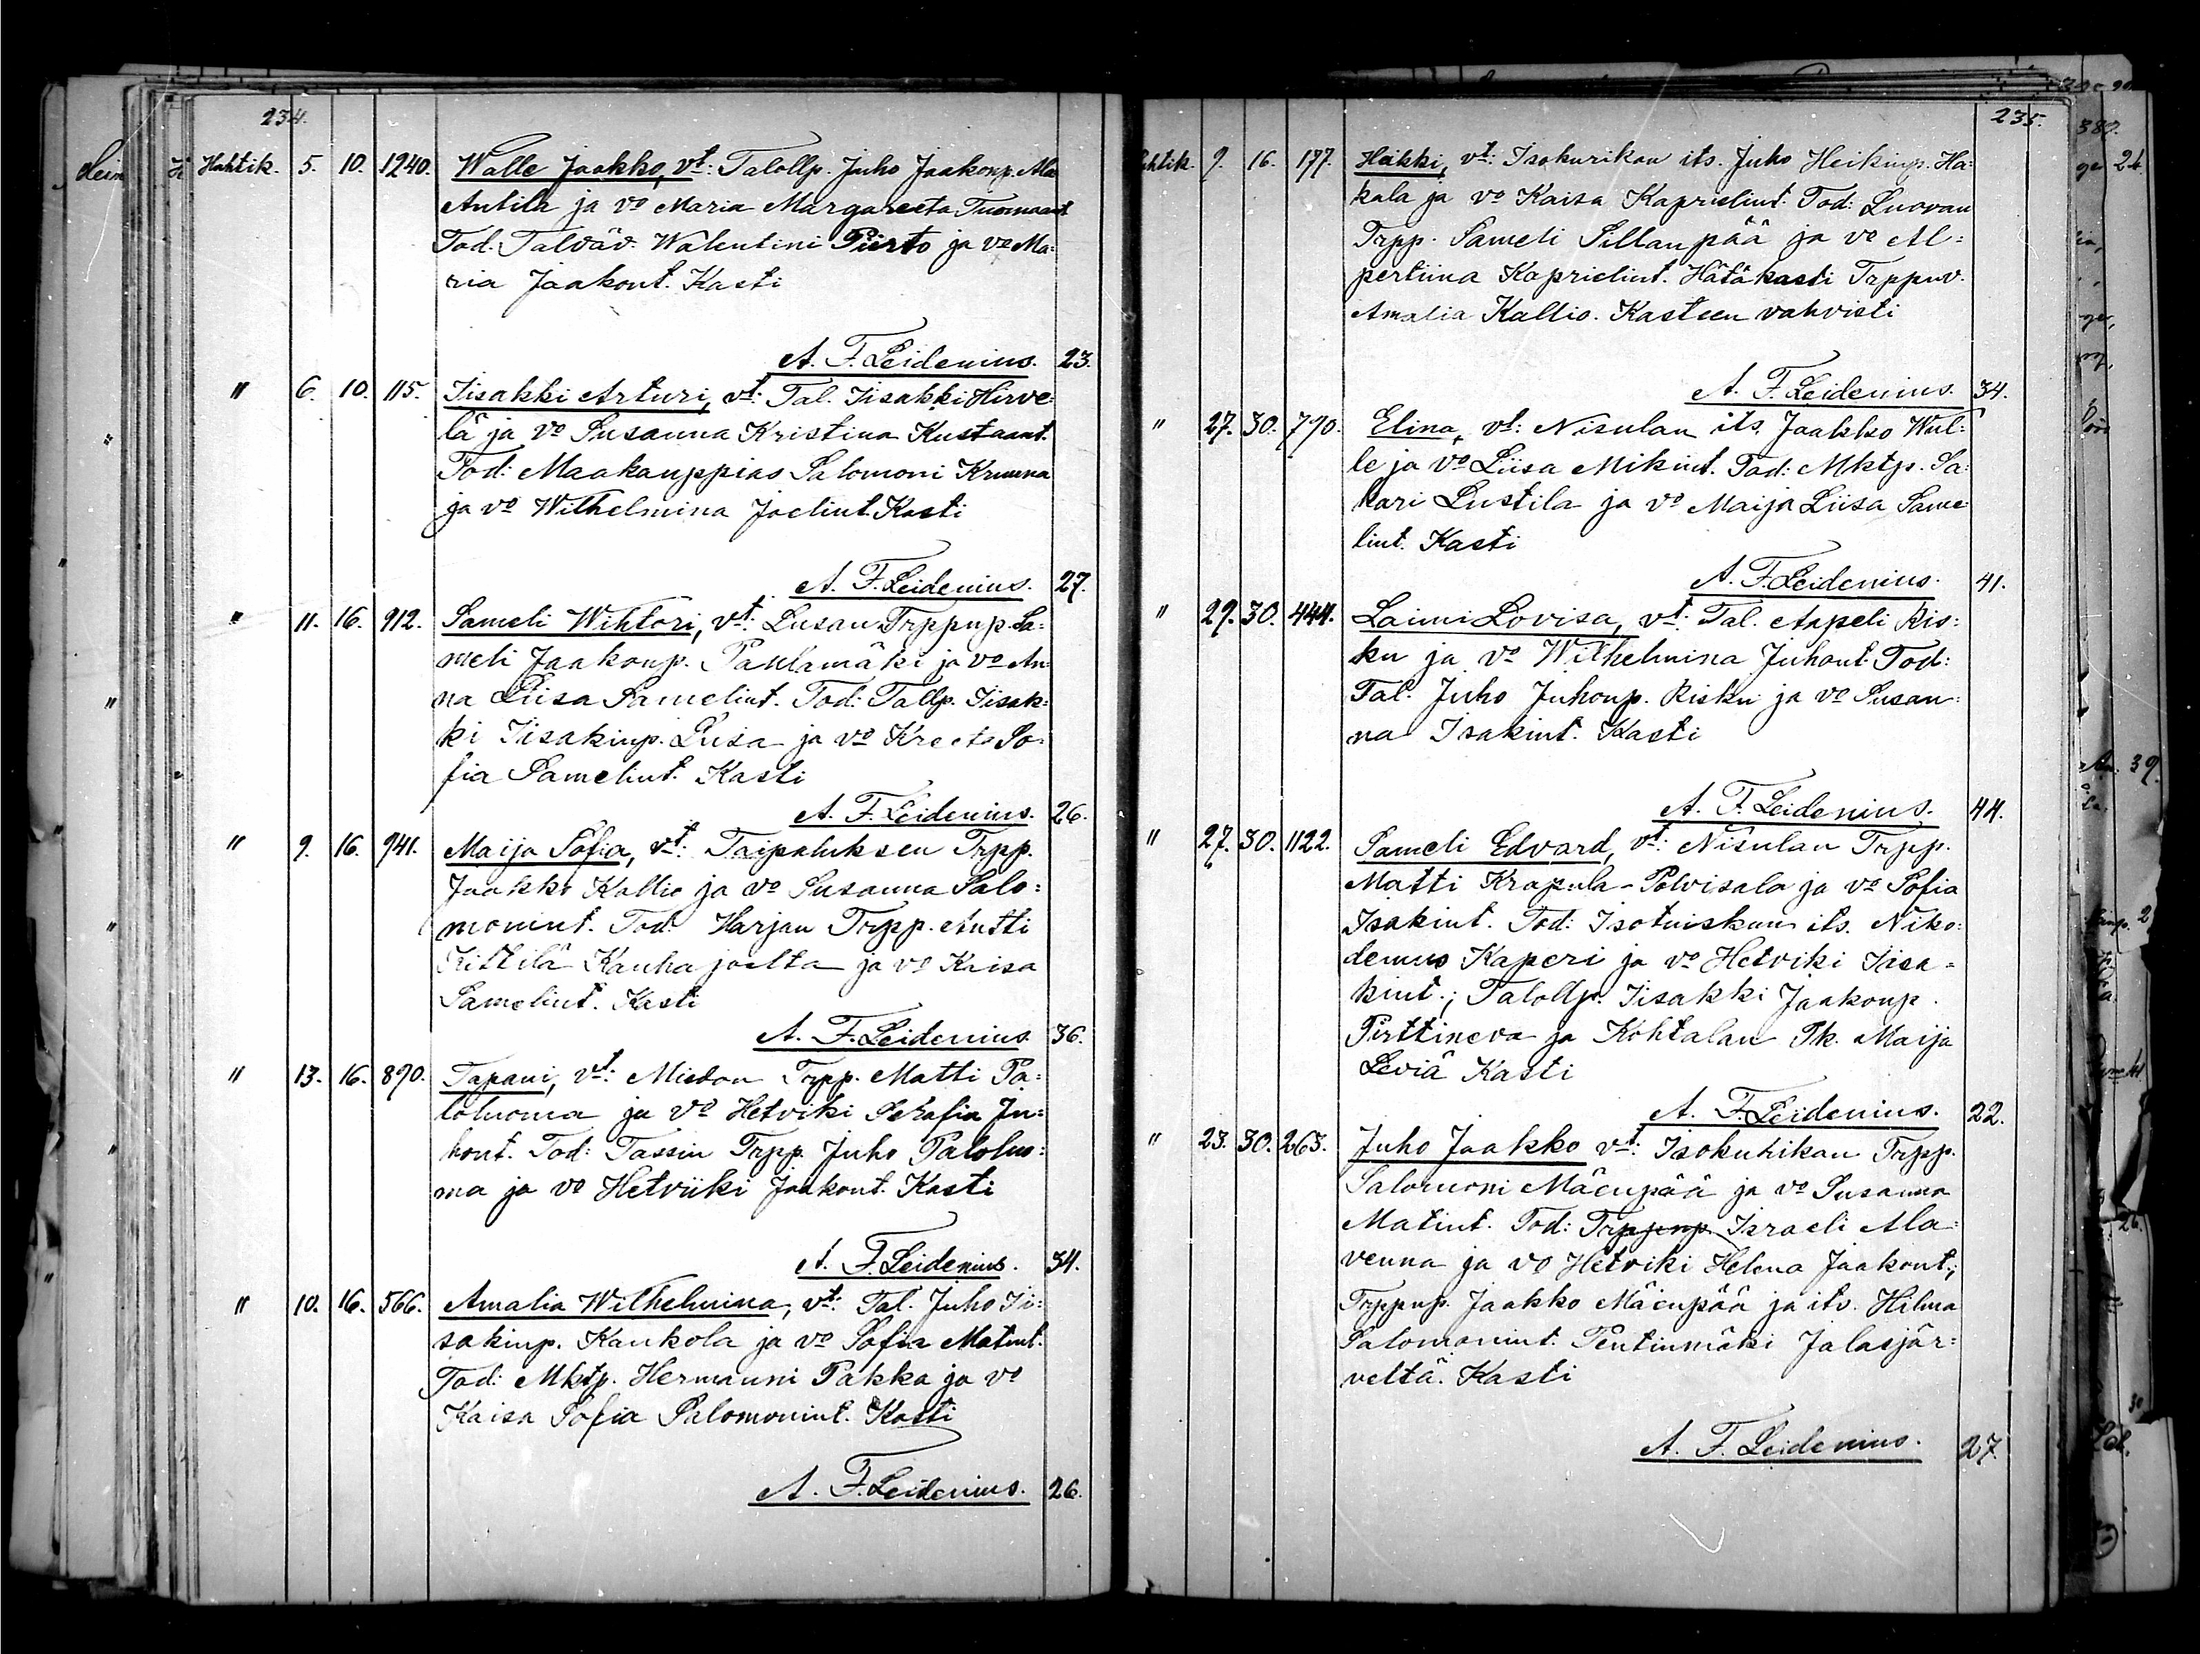 234.
Huhtik. 5. 10. 1240. Walle Jaakko, vt: Talollp. Juho Jaakonp. Ala
Anttila ja vo Maria Margareeta Tuomaant
Tod. Talväv. Walentini Piirto ja vo Ma:
ria Jaakont. Kasti
A. F. Leidenius. 23.
" 6. 10. 115. Iisakki Arturi, vt: Tal. Iisakki Hirve:
lä ja vo Susanna Kristina Kustaant.
Tod: Maakauppias Salomoni Krunna
ja vo Wilhelmina Joelint. Kasti
A. F. Leidenius. 27.
" 11. 16. 912. Sameli Wihtori, vt: Lusan Trppnp. Sa:
meli Jaakonp. Panlamäki ja vo An:
na Liisa Samelint. Tod: Tallp. Iisak:
ki Iisakinp. Luisa ja vo Kreeta So:
fia Samelint. Kasti
A. F. Leidenius. 26.
" 9. 16. 941. Maija Sofia, vt: Taipaluksen Trpp.
Jaakko Kallio ja vo Susanna Salo:
monint. Tod. Harjan Trpp. Antti
Kittilä Kauhajoelta ja vo Kaisa
Samelint. Kasti
A. F. Leidenius. 36.
" 13. 16. 890. Tapani, vt: Miedon Trpp. Matti Pa:
loluoma ja vo Hetviki Serafia Ju:
hont. Tod: Tassin Trpp. Juho Paloluo:
ma ja vo Hetviiki Jaakont. Kasti
A. F. Leidenius. 34.
" 10. 16. 566. Amalia Wilhelmina, vt: Tal. Juho Ii:
sakinp. Kaukola ja vo Sofia Matint.
Tod: Mktp. Hermanni Pakka ja vo
Kaisa Sofia Salomonint. Kasti
A. F. Leidenius. 26.
235.
Huhtik. 9. 16. 177. Heikki, vt: Isokurikan its. Juho Heikinp. Ha:
kala ja vo Kaisa Kaprielint. Tod: Luovan
Trpp. Sameli Sillanpää ja vo Al:
pertiina Kaprielint. Hätäkasti Trppnv.
Amalia Kallio. Kasteen vahvisti
A. F. Leidenius. 34.
" 27. 30. 790. Elina, vt: Nisulan its. Jaakko Wal:
le ja vo Liisa Mikint. Tod: Mktp. Sa:
kari Lustila ja vo Maija Liisa Same:
lint. Kasti
A. F. Leidenius. 41.
" 29. 30. 444. Laimi Lovisa, vt: Tal. Aapeli Ris:
ku ja vo Wilhelmina Juhont. Tod:
Tal. Juho Juhonp. Risku ja vo Susan:
na Isakint. Kasti
A. F. Leidenius. 44.
" 27. 30. 1122. Sameli Edvard, vt: Nisulan Trpp.
Matti Krapula-Polvisala ja vo Sofia
Isakint. Tod: Isotuiskun its. Niko:
demus Kaperi ja vo Hetviki Iisa:
kint.; Talollp. Iisakki Jaakonp.
Pirttineva ja Kohtalan Pk. Maija
Leviä Kasti
A. F. Leidenius. 22.
" 23. 30. 263. Juho Jaakko vt: Isokurikan Trpp.
Salomoni Mäenpää ja vo Susanna
Matint. Tod: Trppnp. Israeli Ala:
venna ja vo Hetviki Helena Jaakont.;
Trppnp. Jaakko Mäenpää ja its. Hilma
Salomonint. Pentinmäki Jalasjär:
veltä. Kasti
A. F. Leidenius. 27.